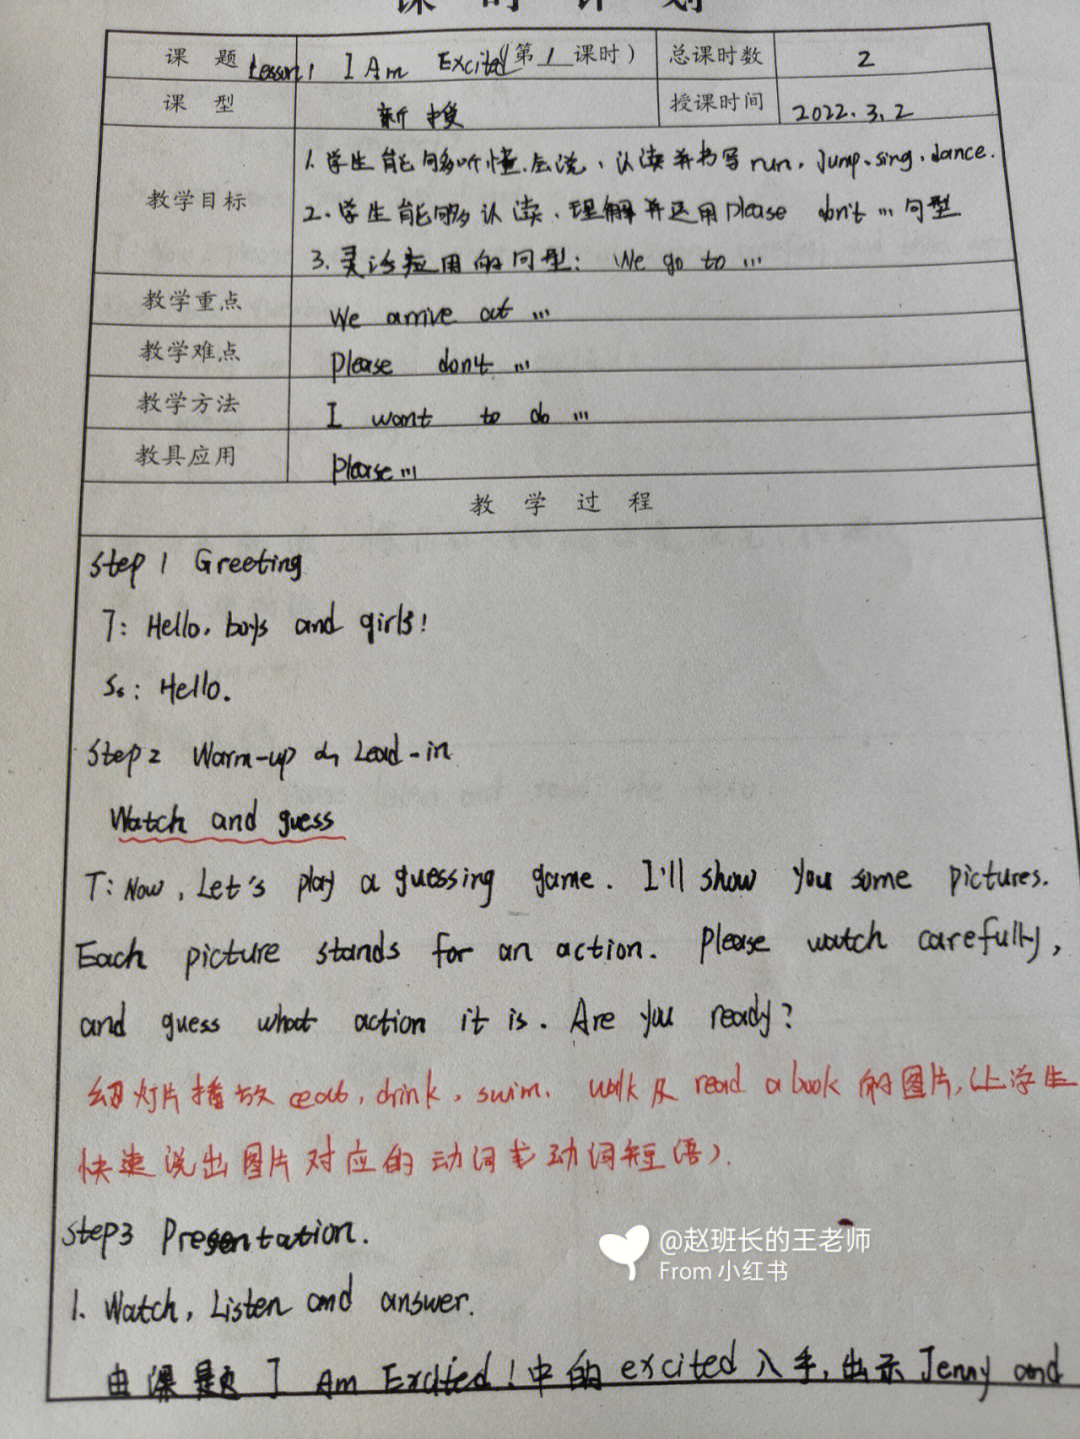 课时计划
课 题 Lesson1 I Am Excited(第 1 课时) 总课时数 2
课 型 新授 授课时间 2022.3.2
教学目标 1.学生能够听懂.会说、认读并书写 run, jump, sing, dance.
2.学生能够认读、理解并运用please don't ... 句型
3.灵活应用的句型: We go to ...
教学重点 We arrive at ...
教学难点 please don't ...
教学方法 I want to do ...
教具应用 please ...
教学过程
Step 1 Greeting
T: Hello, boys and girls!
Ss: Hello.
Step2 Warm-up & Lead-in
Watch and guess
T: Now, Let's play a guessing game. I'll show you some pictures.
Each picture stands for an action. Please watch carefully,
and guess what action it is. Are you ready?
灯片播放 eat, drink, swim, walk 及 read a book 的图片,让学生
快速说出图片对应的动词或动词短语).
Step3 Presentation.
1. Watch, Listen and answer.
由课题 I Am Excited!中的 excited 入手,出示 Jenny and
@赵班长的王老师
From 小红书